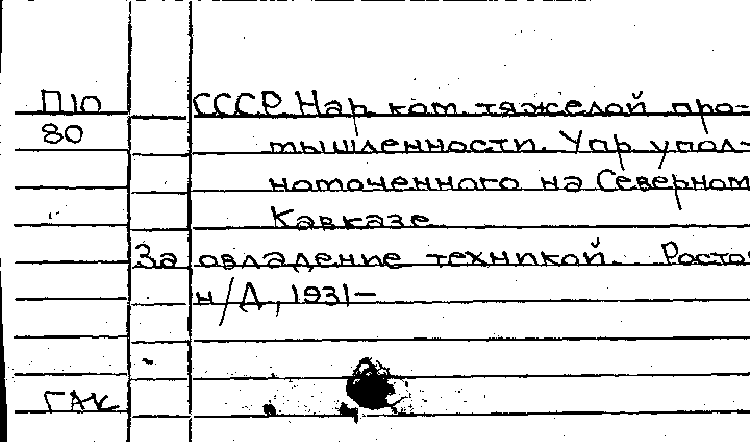 П10 СССР. Нар. ком. тяжелой про-
80 мышленности. Упр. упол-
номоченного на Северном
Кавказе
За овладение техникой. Росто
н/Д, 1931–
ГАК